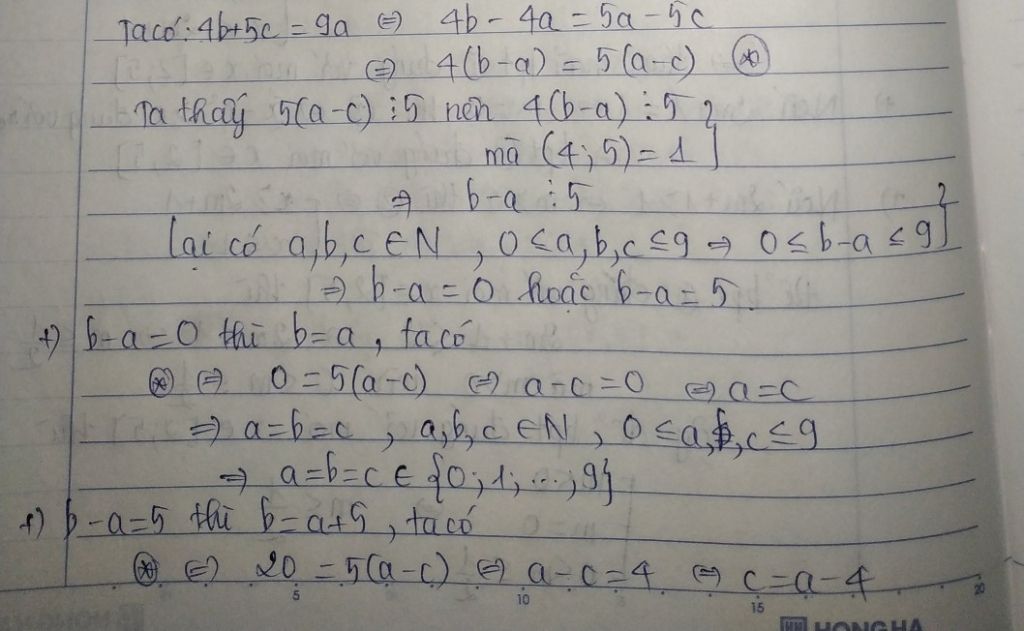 Ta có: 4b+5c = 9a ⇔ 4b - 4a = 5a - 5c
⇔ 4(b-a) = 5(a-c) (*)
Ta thấy 5(a-c) ⋮ 5 nên 4(b-a) ⋮ 5 }
mà (4; 5) = 1
⇒ b-a ⋮ 5 }
Lại có a,b,c ∈ N , 0 ≤ a,b,c ≤ 9 ⇒ 0 ≤ b-a ≤ 9
⇒ b-a = 0 hoặc b-a = 5
+) b-a = 0 thì b = a , ta có
(*) ⇔ 0 = 5(a-c) ⇔ a-c = 0 ⇔ a = c
⇒ a = b = c , a,b,c ∈ N , 0 ≤ a,b,c ≤ 9
⇒ a = b = c ∈ {0; 1; ...; 9}
+) b-a = 5 thì b = a+5 , ta có
(*) ⇔ 20 = 5(a-c) ⇔ a-c = 4 ⇔ c = a-4
5 10 15 20
HONG HA